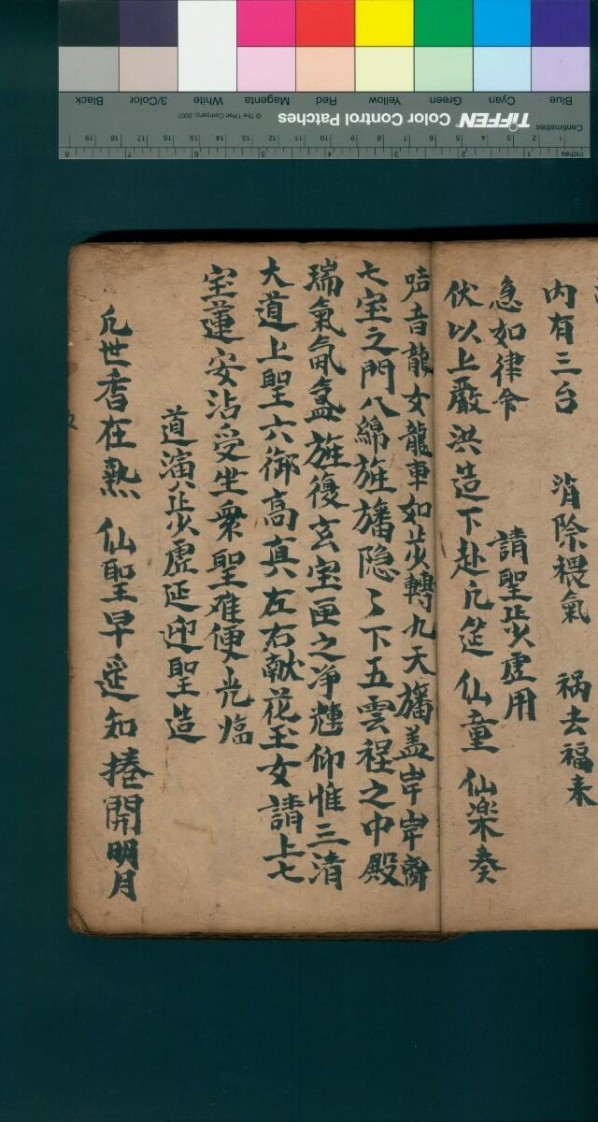 内有三台　消除禐氣　祸去福来
急如律令　請聖步虛用
伏以上嚴洪造下赴凢筵　仙童　仙樂奏
音龍女龍車如步轉九天旛盖岸岸齊
七宝之門八綿旌旛隐〻下五雲程之中殿
瑞氣氤氲旌復玄宝匣之净𨍭仰惟三清
大道上聖六御高真左右献花玉女請上七
宝蓮安沾受坐衆聖雍便光臨
道演步虛延迎聖造
凢世香在熱　仙聖早遥知捲開明月
Blue Cyan Green Yellow Red Magenta White 3/Color Black
TIFFEN Color Control Patches © The Tiffen Company, 2007
Centimetres
Inches